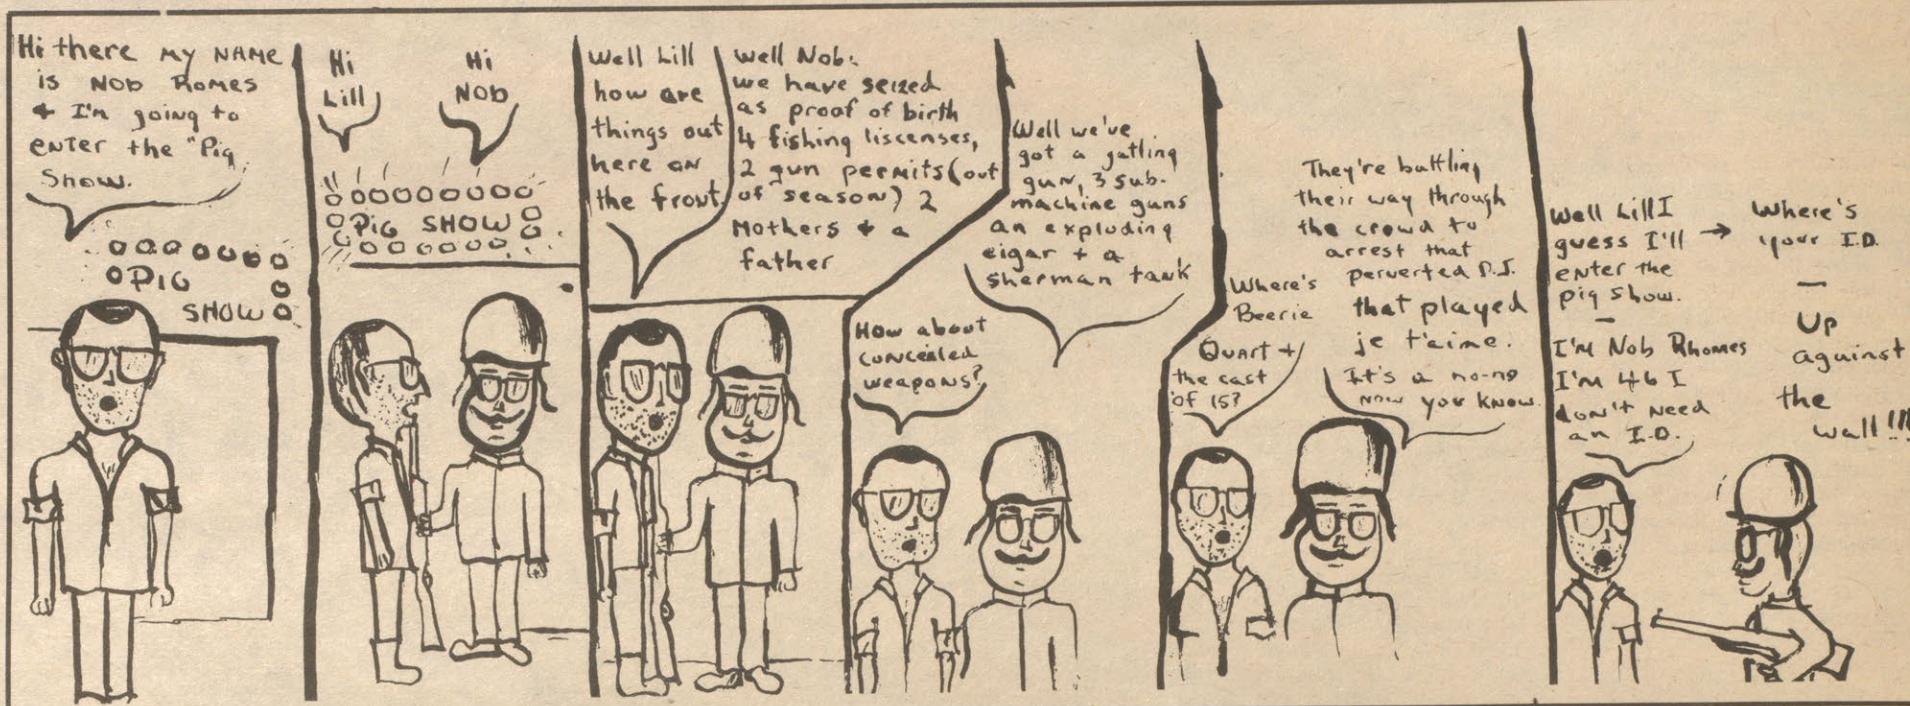 Hi there my NAME
is NOB Romes
+ I'm going to
enter the "Pig
Show.
PIG
SHOW
Hi
Lill
Hi
NOB
PIG SHOW
Well Lill
how are
things out
here on
the front
Well Nob:
we have seized
as proof of birth
4 fishing liscenses,
2 gun permits (out
of season) 2
Mothers + a
father
How about
concealed
weapons?
Well we've
got a gatling
gun, 3 sub-
machine guns
an exploding
cigar + a
sherman tank
Where's
Beerie
Quart +
the cast
of 15?
They're battling
their way through
the crowd to
arrest that
perverted D.J.
that played
je t'aime.
It's a no-no
now you know.
Well Lill I
guess I'll →
enter the
pig show.
—
I'm Nob Rhomes
I'm 46 I
don't need
an I.D.
Where's
your I.D.
—
Up
against
the
wall!!!